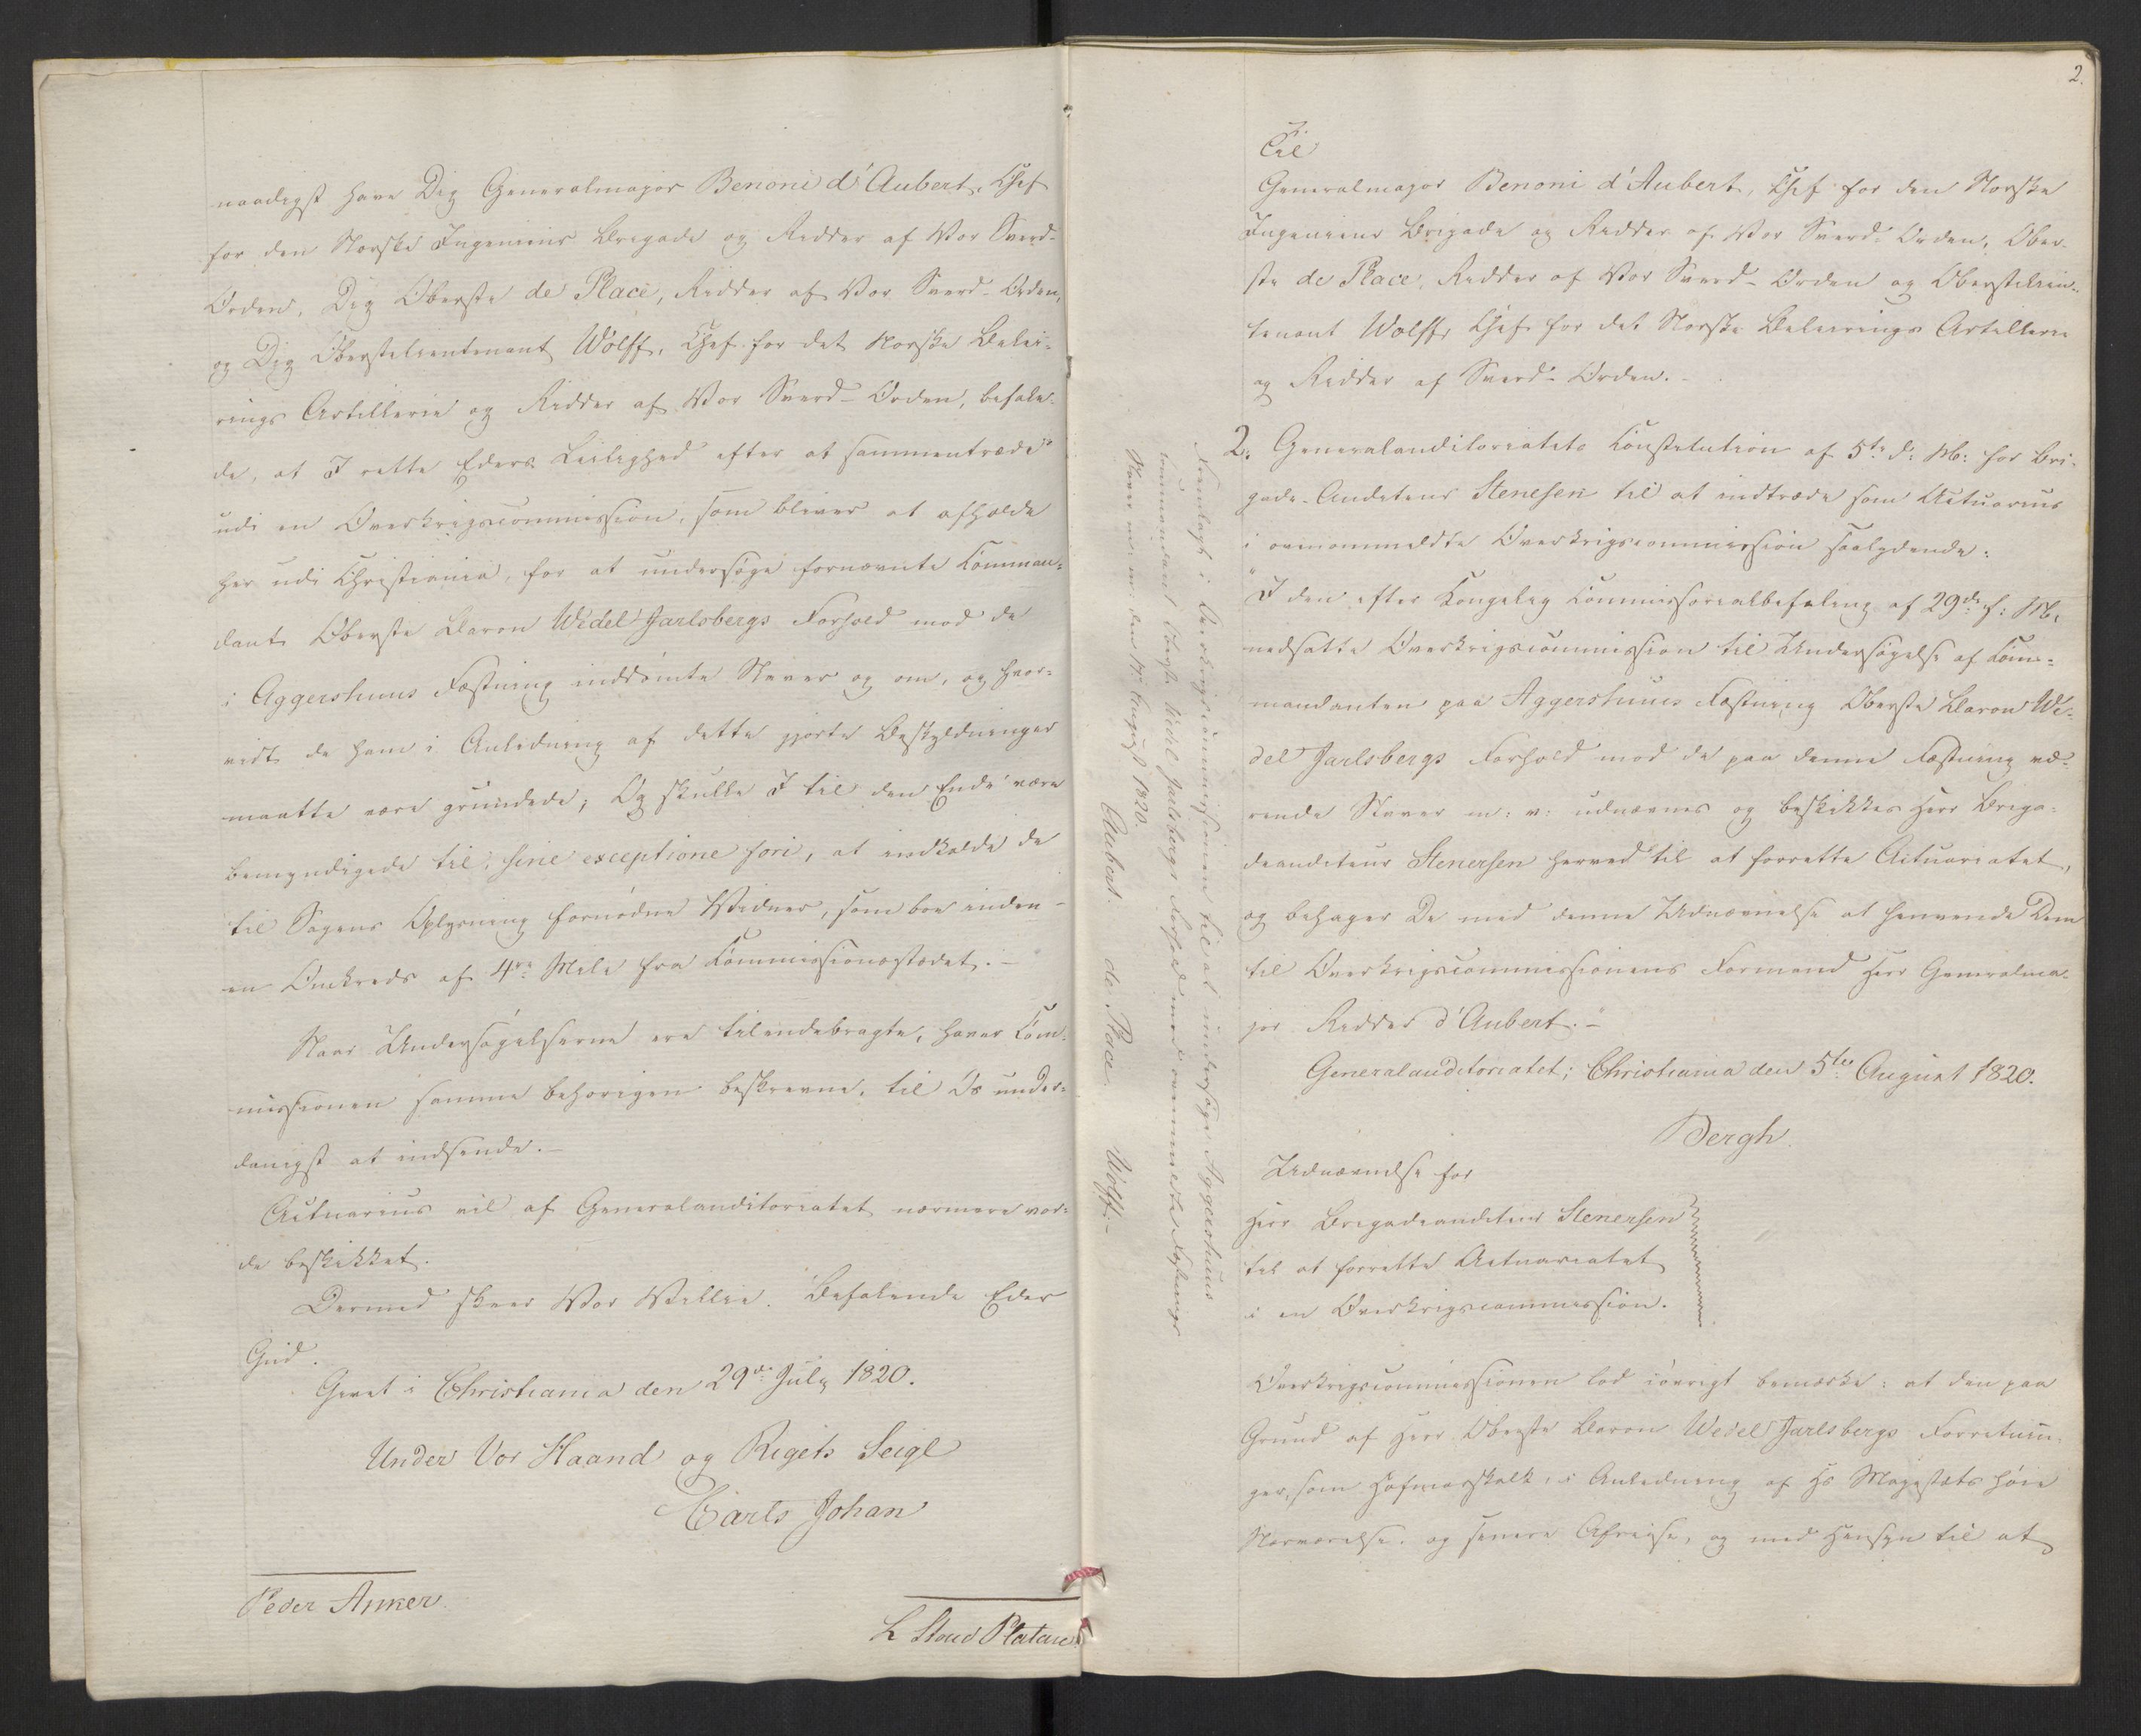 naadigst have Dig Generalmajor Benoni d'Aubert, Chef
for den Norske Ingenieur Brigade og Ridder af Vor Sverd-
Orden, Dig Oberste de Place, Ridder af Vor Sverd-Orden,
og Dig Oberstelieutenant Wolff, Chef for det Norske Belei-
rings Artillerie og Ridder af Vor Sverd-Orden, befale-
de, at I rette Eders Leilighed efter at sammentræde
udi en Overkrigscommission, som bliver at afholde
her udi Christiania, for at undersøge fornævnte Komman-
dant Oberste Baron Wedel Jarlsbergs Forhold mod de
i Aggershuus Fæstning inddømte Slaver og om, og hvor-
vidt de ham i Anledning af dette gjorte Beskyldninger
maatte være grundede; Og skulle I til den Ende være
bemyndigede til, sine exceptione fori, at indkalde de
til Sagens Oplysning fornødne Vidner, som boe inden
en Omkreds af 4re Mile fra Commissionsstædet. –
Naar Undersøgelserne ere tilendebragte, haver Com-
missionen samme behørigen beskrevne, til Os under-
danigst at indsende. –
Actuarius vil af Generalauditoriatet nærmere vor-
de beskikket.
Dermed skeer Vor Villie. Befalende Eder
Gud.
Givet i Christiania den 29de July 1820.
Under Vor Haand og Rigets Seigl
Carl Johan
Peder Anker
L Stoud Platou
2.
Til
Generalmajor Benoni d'Aubert, Chef for den Norske
Ingenieur Brigade og Ridder af Vor Sverd-Orden, Ober-
ste de Place, Ridder af Vor Sverd-Orden og Oberstelieu-
tenant Wolff, Chef for det Norske Beleirings Artillerie
og Ridder af Sverd-Orden. –
2. Generalauditoriatets Constitution af 5te d: M: for Bri-
gade-Auditeur Stenersen til at indtræde som Actuarius
i ovenommeldte Overkrigscommission saalydende:
"I den efter Kongelig Commissorialbefaling af 29de f: M:
nedsatte Overkrigscommission til Undersøgelse af Com-
mandanten paa Aggershuus Fæstning Oberste Baron We-
del Jarlsbergs Forhold mod de paa denne Fæstning væ-
rende Slaver m: v: udnævnes og beskikkes Herr Briga-
deauditeur Stenersen herved til at forrette Actuariatet,
og behager De med denne Udnævnelse at henvende Dem
til Overkrigscommissionens Formand Herr Generalma-
jor Ridder d'Aubert. –"
Generalauditoriatet; Christiania den 5te August 1820.
Bergh.
Udnævnelse for
Herr Brigadeauditeur Stenersen
til at forrette Actuariatet
i en Overkrigscommission.
Overkrigscommissionen lod iøvrigt bemærke: at den paa
Grund af Herr Oberste Baron Wedel Jarlsbergs Forretnin-
ger, som Hofmarskalk, i Anledning af Hs Majestæts høie
Nærværelse og senere Afreise, og med Hensyn til at
Fremlagt i Overkrigscommissionen til at undersøge Aggershuus
Commandant Oberste Wedel Jarlsbergs Forhold mod ovennævnte Fæstnings
Slaver m: v: den 17 August 1820.
Aubert. de Place. Wolff. –